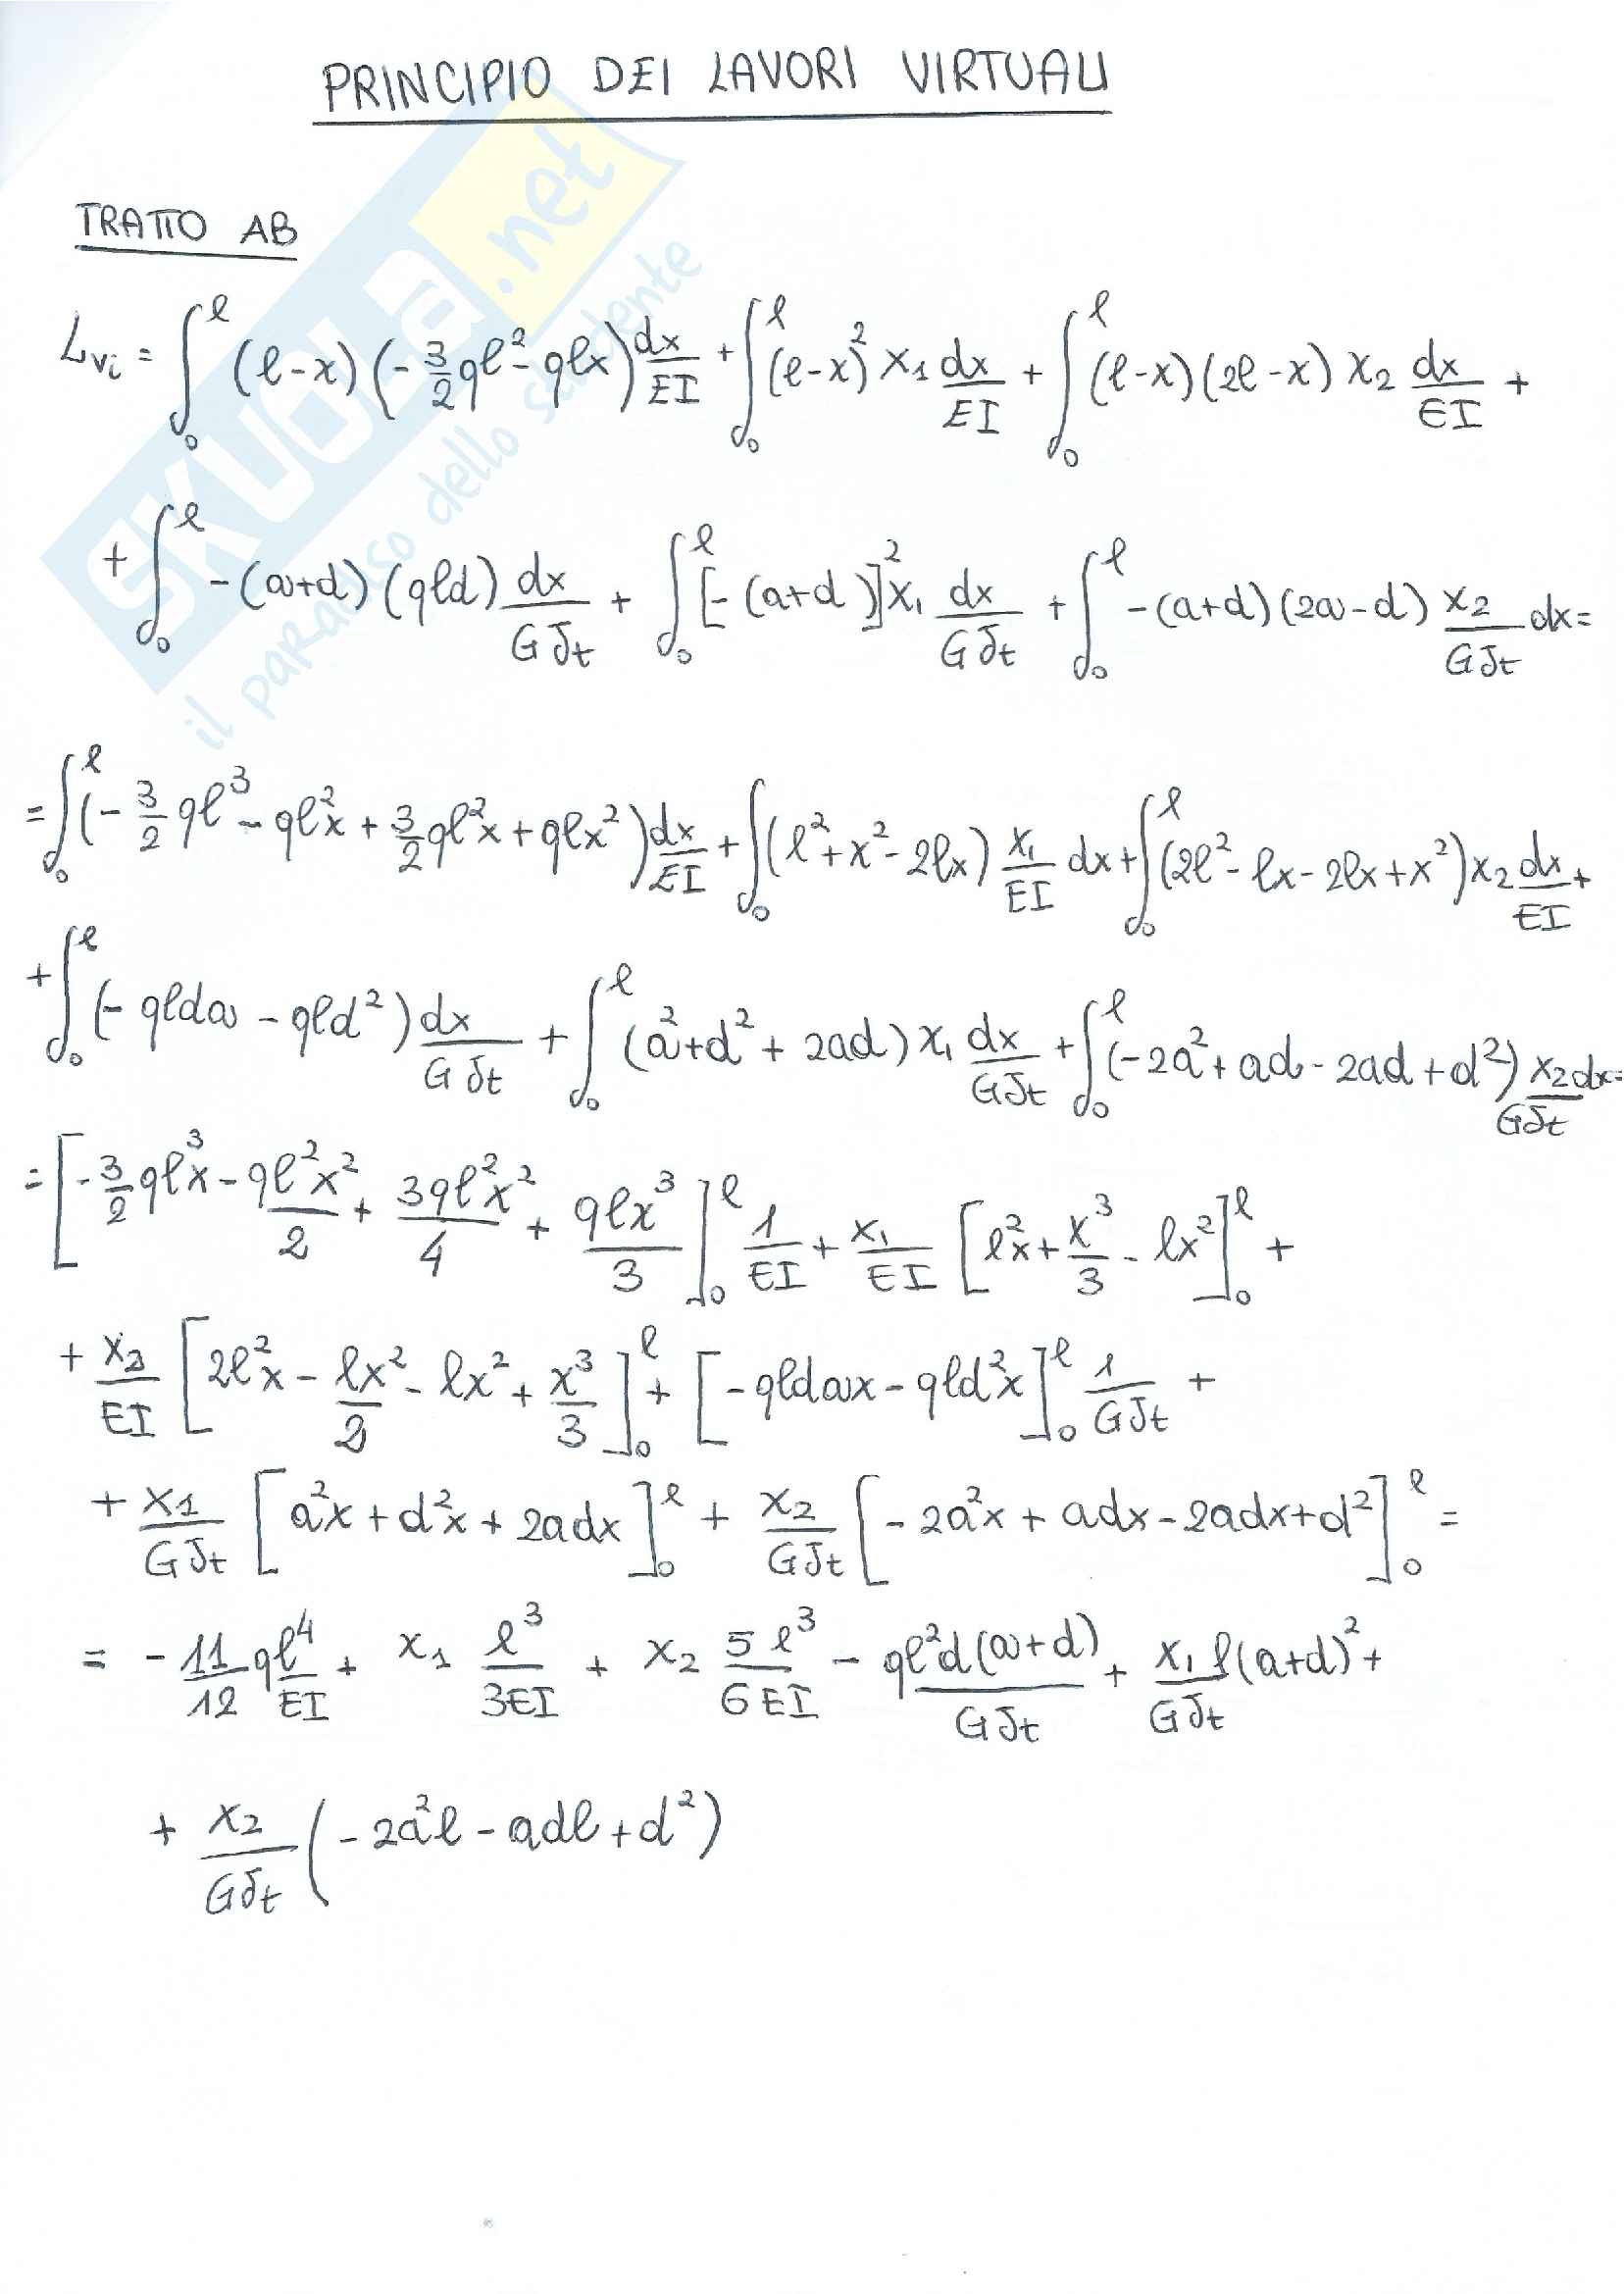 PRINCIPIO DEI LAVORI VIRTUALI
TRATTO AB
Lvi = ∫₀^ℓ (ℓ-x)(-3/2 qℓ² - qℓx) dx/EI + ∫₀^ℓ (ℓ-x)² x₁ dx/EI + ∫₀^ℓ (ℓ-x)(2ℓ-x) x₂ dx/EI +
+ ∫₀^ℓ -(a+d)(qℓd) dx/GJt + ∫₀^ℓ [-(a+d)]² x₁ dx/GJt + ∫₀^ℓ -(a+d)(2a-d) x₂/GJt dx =
= ∫₀^ℓ (-3/2 qℓ³ - qℓ²x + 3/2 qℓ²x + qℓx²) dx/EI + ∫₀ (ℓ² + x² - 2ℓx) x₁/EI dx + ∫₀^ℓ (2ℓ² - ℓx - 2ℓx + x²) x₂ dx/EI +
+ ∫₀^ℓ (-qℓda - qℓd²) dx/GJt + ∫₀^ℓ (a² + d² + 2ad) x₁ dx/GJt + ∫₀^ℓ (-2a² + ad - 2ad + d²) x₂ dx/GJt =
= [-3/2 qℓ³x - qℓ²x²/2 + 3qℓ²x²/4 + qℓx³/3]₀^ℓ 1/EI + x₁/EI [ℓ²x + x³/3 - ℓx²]₀^ℓ +
+ x₂/EI [2ℓ²x - ℓx²/2 - ℓx² + x³/3]₀^ℓ + [-qℓdax - qℓd²x]₀^ℓ 1/GJt +
+ x₁/GJt [a²x + d²x + 2adx]₀^ℓ + x₂/GJt [-2a²x + adx - 2adx + d²]₀^ℓ =
= -11/12 qℓ⁴/EI + x₁ ℓ³/3EI + x₂ 5ℓ³/6EI - qℓ²d(a+d)/GJt + x₁/GJt ℓ(a+d)² +
+ x₂/GJt (-2a²ℓ - adℓ + d²)
SKUOLA.net
il paradiso dello studente